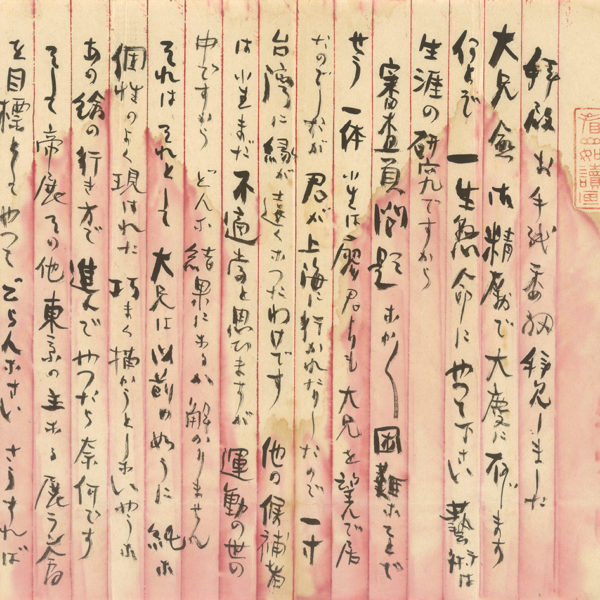 拝啓 お手紙委細拝見しました
大兄愈御精励で大慶に存じます
何とぞ一生懸命にやつて下さい 藝術は
生涯の研究ですから
審査員問題 なか〱困難なことで
せう 一体 小生は廖君よりも大兄を望んで居
たのでしたが 君が上海に行かれたりしたので 一寸
台湾に縁が遠くなつたわけです 他の候補者
は小生まだ不適当と思ひますが 運動の世の
中ですから どんな結果になるか解かりません
それはそれとして 大兄は以前の如うに 純な
個性のよく現はれた 巧まく描かうとしないやうな
あの繪の行き方で進んでやつたら奈何です
そして 帝展その他東京の主なる展らん会
を目標としてやつてごらんなさい さうすれば
看雲如讀画